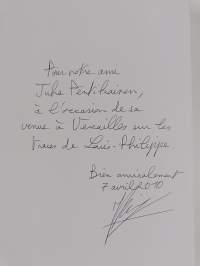 Pour notre ami
Juha Pentikäinen,
à l'occasion de sa
venue à Versailles sur les
traces de Louis-Philippe
Bien amicalement
7 avril 2010